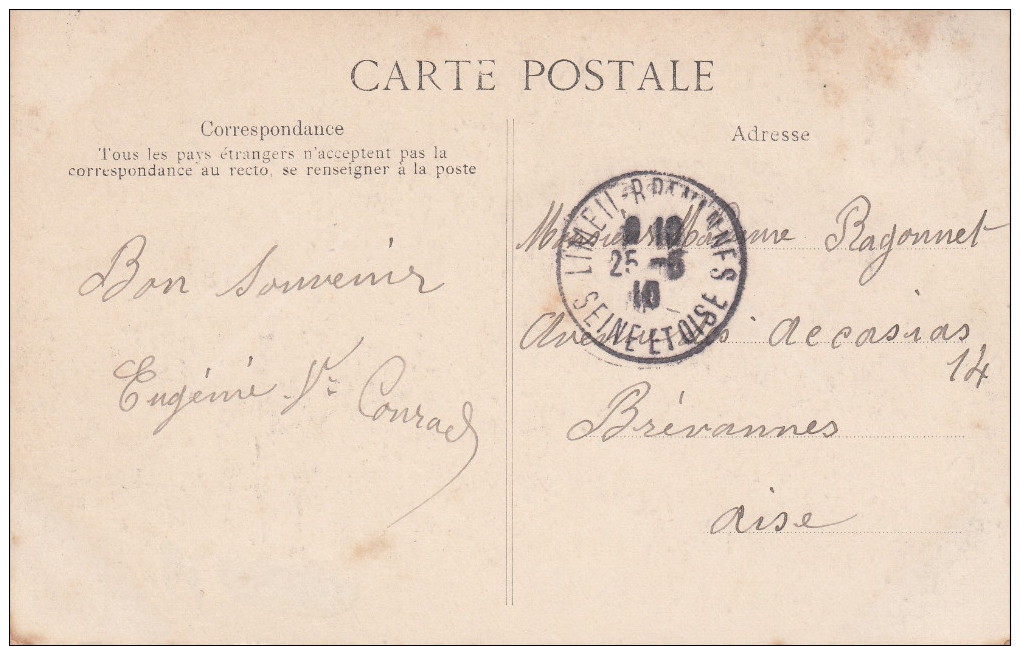 CARTE POSTALE
Correspondance
Tous les pays étrangers n'acceptent pas la
correspondance au recto, se renseigner à la poste
Bon souvenir
Eugénie Conrad
Adresse
Madame Ragonnet
Avenue accasias
14
Brévannes
oise
LIMEIL-BREVANNES
10
25 - 5
10
SEINE ET OISE